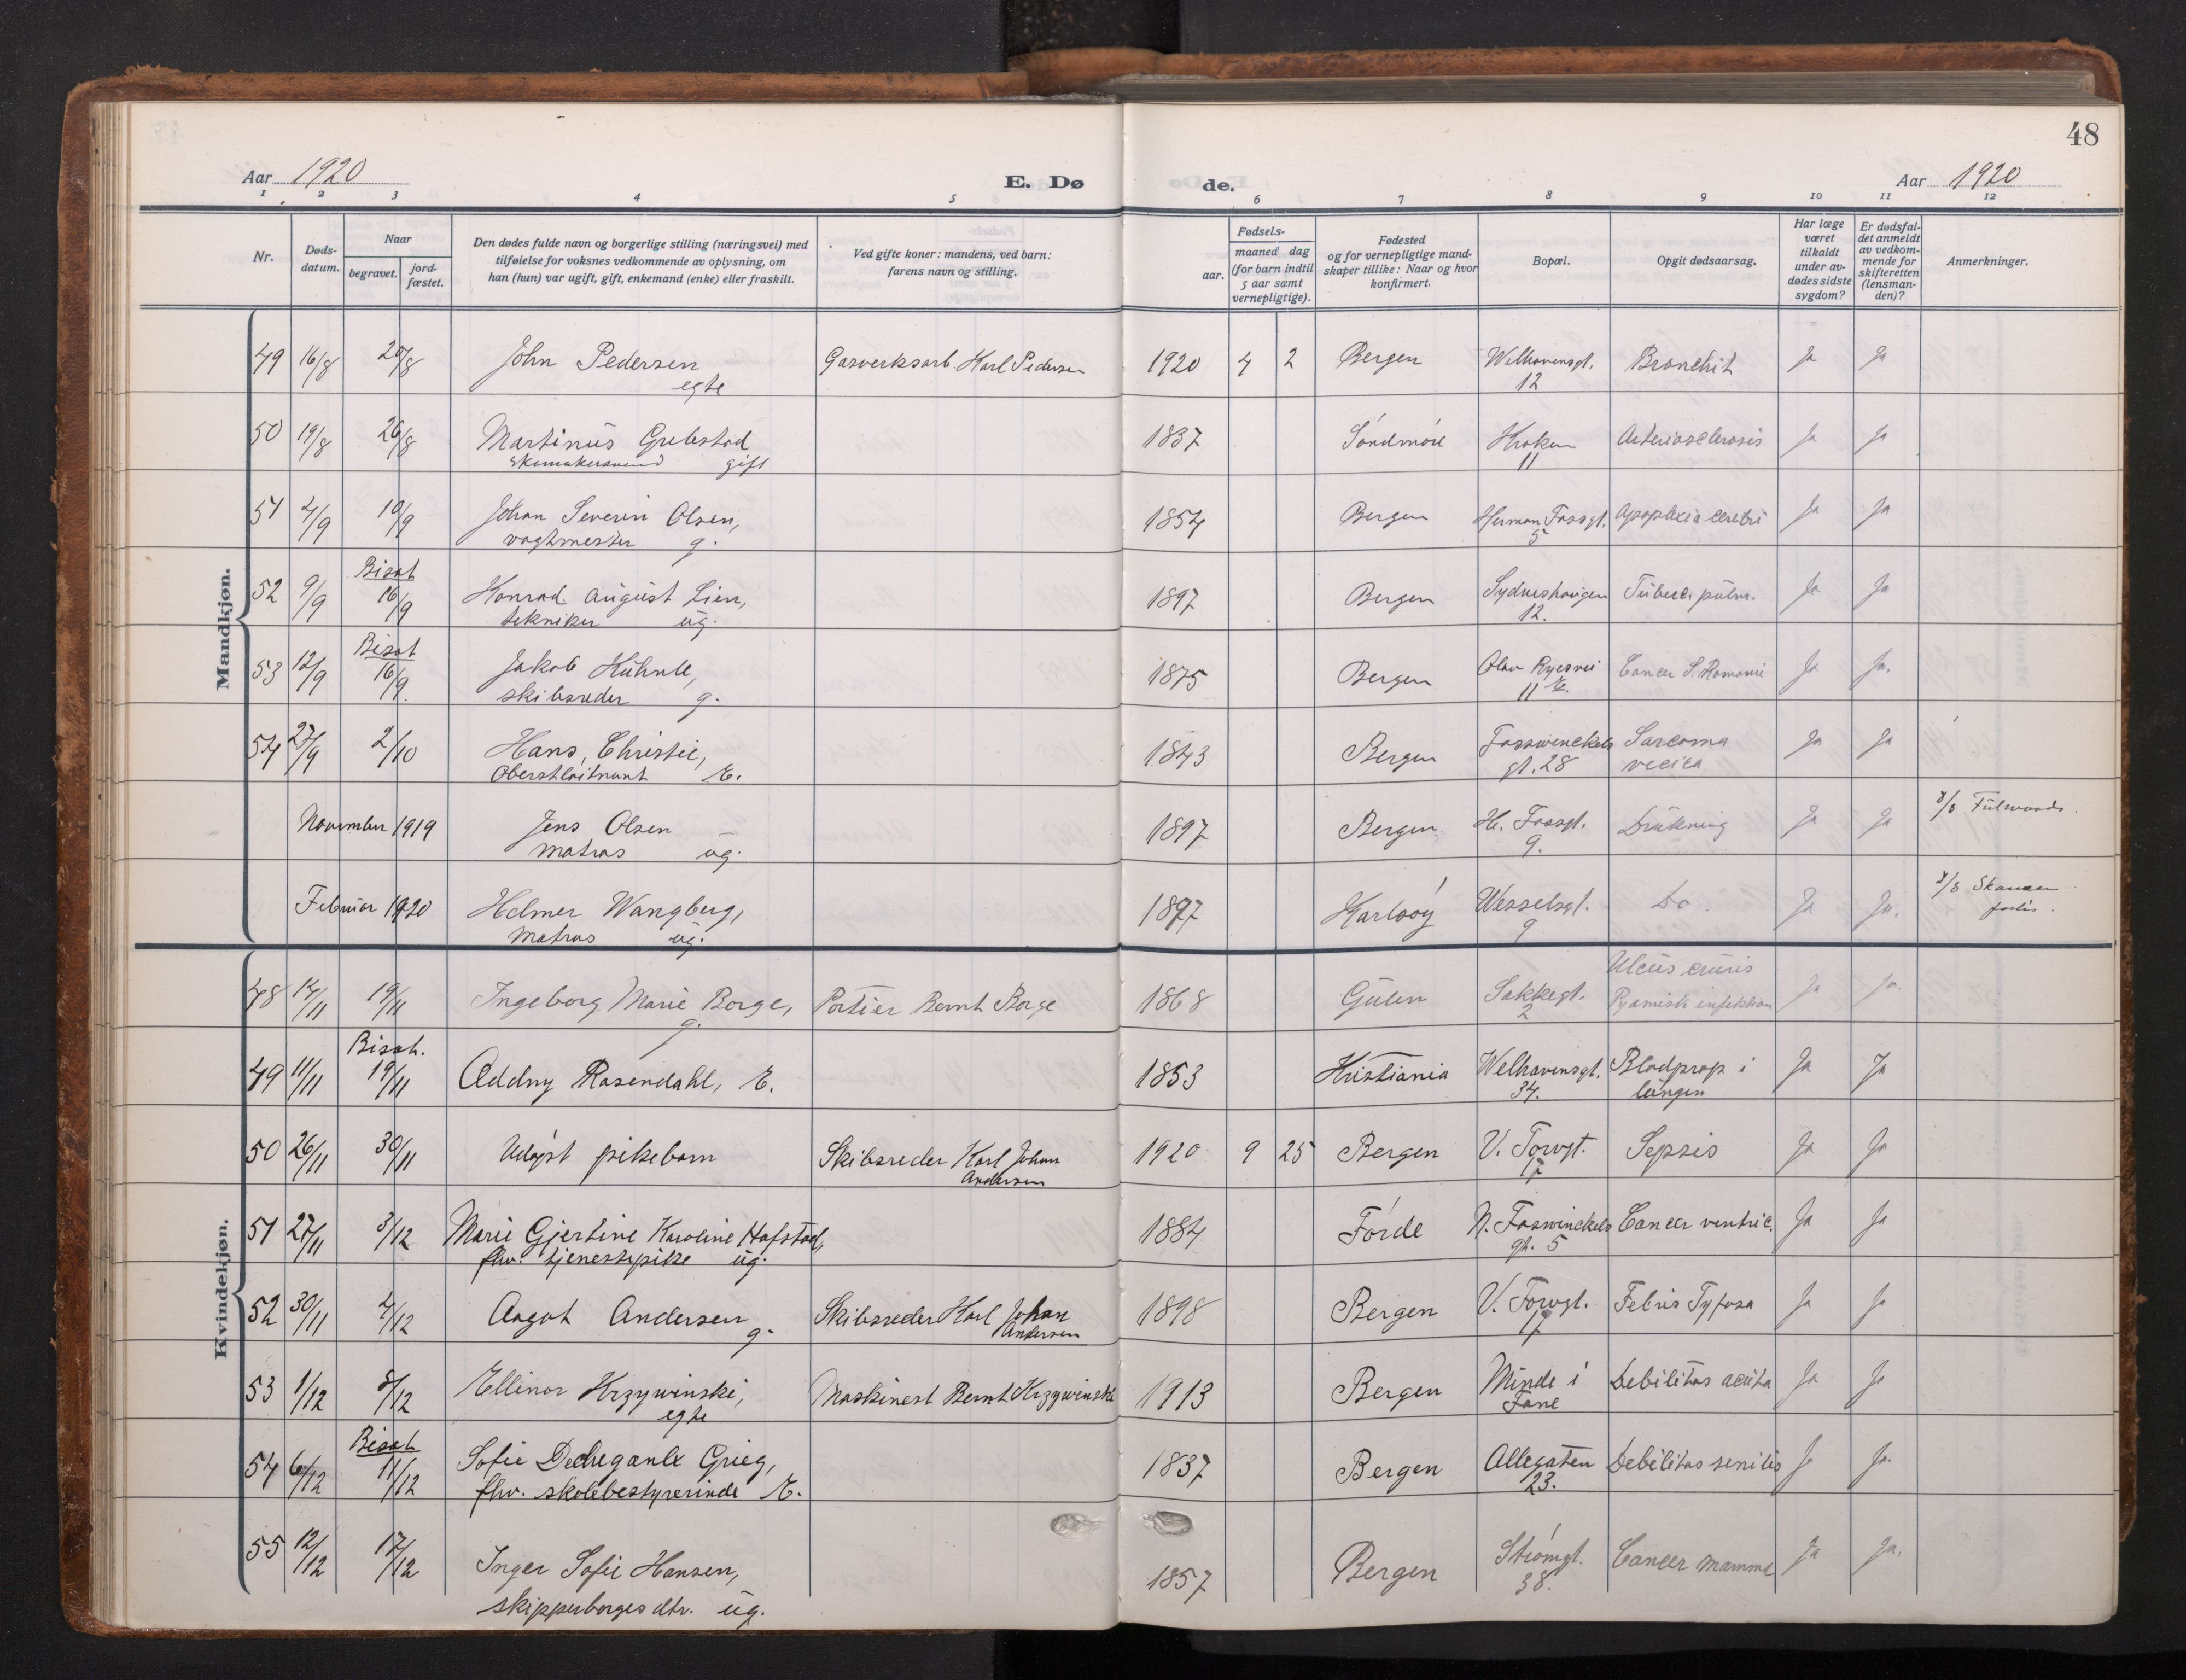 48
Aar 1920
E. Dø
de.
Aar 1920
1 2 3 4 5 6 7 8 9 10 11 12
Nr.
Døds-
datum.
Naar
begravet.
jord-
fæstet.
Den dødes fulde navn og borgerlige stilling (næringsvei) med
tilføielse for voksnes vedkommende av oplysning, om
han (hun) var ugift, gift, enkemand (enke) eller fraskilt.
Ved gifte koner: mandens, ved barn:
farens navn og stilling.
Fødsels-
aar.
maaned dag
(for barn indtil
5 aar samt
vernepligtige).
Fødested
og for vernepligtige mand-
skaper tillike: Naar og hvor
konfirmert.
Bopæl.
Opgit dødsaarsag.
Har læge
været
tilkaldt
under av-
dødes sidste
sygdom?
Er dødsfal-
det anmeldt
av vedkom-
mende for
skifteretten
(lensman-
den)?
Anmerkninger.
Mandkjøn.
49 16/8 20/8 John Pedersen Gasverksarb. Karl Pedersen 1920 4 2 Bergen Welhavensgt. Bronchit Ja Ja
egte 12
50 19/8 26/8 Martinus Grebstad 1837 Söndmöre Kroken Arteriosclerosis Ja Ja
skomakersvend gift 11
51 4/9 10/9 Johan Severin Olsen, 1854 Bergen Herman Fossgt. Apoplexia cerebri Ja Ja
vagtmester g. 5
Bisat
52 9/9 16/9 Konrad August Lien, 1897 Bergen Sydneshaugen Tuberc. pulm. Ja Ja
tekniker ug. 12.
Bisat
53 12/9 16/9. Jakob Kuhnle, 1875 Bergen Olav Ryesvei Cancer S. Romanii Ja Ja.
skibsreder g. 11 E.
54 27/9 2/10 Hans Christie, 1843 Bergen Fosswenckels Sarcoma Ja Ja
Oberstløitnant E. gt. 28 vecica
November 1919 Jens Olsen 1897 Bergen H. Fossgt. Drukning Ja Ja
Matros ug. 9.
Februar 1920 Helmer Wangberg, 1897 Karlsöy Wesselsgt. Do. Ja Ja.
Matros ug. 9
Kvindekjøn.
Ulcus cruris
48 14/11 19/11 Ingeborg Marie Borge, Portier Bernt Borge 1868 Gulen Sakkegt. Pyamisk infektion Ja Ja.
g. 2
Bisat.
49 11/11 19/11 Æddny Rosendahl, E. 1853 Kristiania Welhavensgt. Blodprop i Ja Ja
34. lungen
50 26/11 30/11 Udöpt pikebarn Skibsreder Karl Johan 1920 9 25 Bergen V. Torvgt. Sepsis Ja Ja
Andersen
51 27/11 3/12 Marie Gjertine Karoline Hafstad, 1884 Förde N. Foswinckels Cancer ventric. Ja Ja
fhv. tjenestepike ug. gt. 5
52 30/11 4/12 Aagot Andersen Skibsreder Karl Johan 1898 Bergen V. Torvgt. Febris Tyfosa Ja Ja
g. Andersen
53 1/12 8/12 Ellinor Krzywinski, Maskinest Bernt Krzywinski 1913 Bergen Minde i Debilitas acuta Ja Ja
egte Fane
Bisat
54 6/12 11/12 Sofie Grieg, 1837 Bergen Allegaten Debilitas senilis Ja Ja.
fhv. skolebestyrerinde E. 23.
55 12/12 17/12 Inger Sofie Hansen, 1857 Bergen Strömgt. Cancer mamma Ja Ja.
skipperborges dtr. ug. 38.